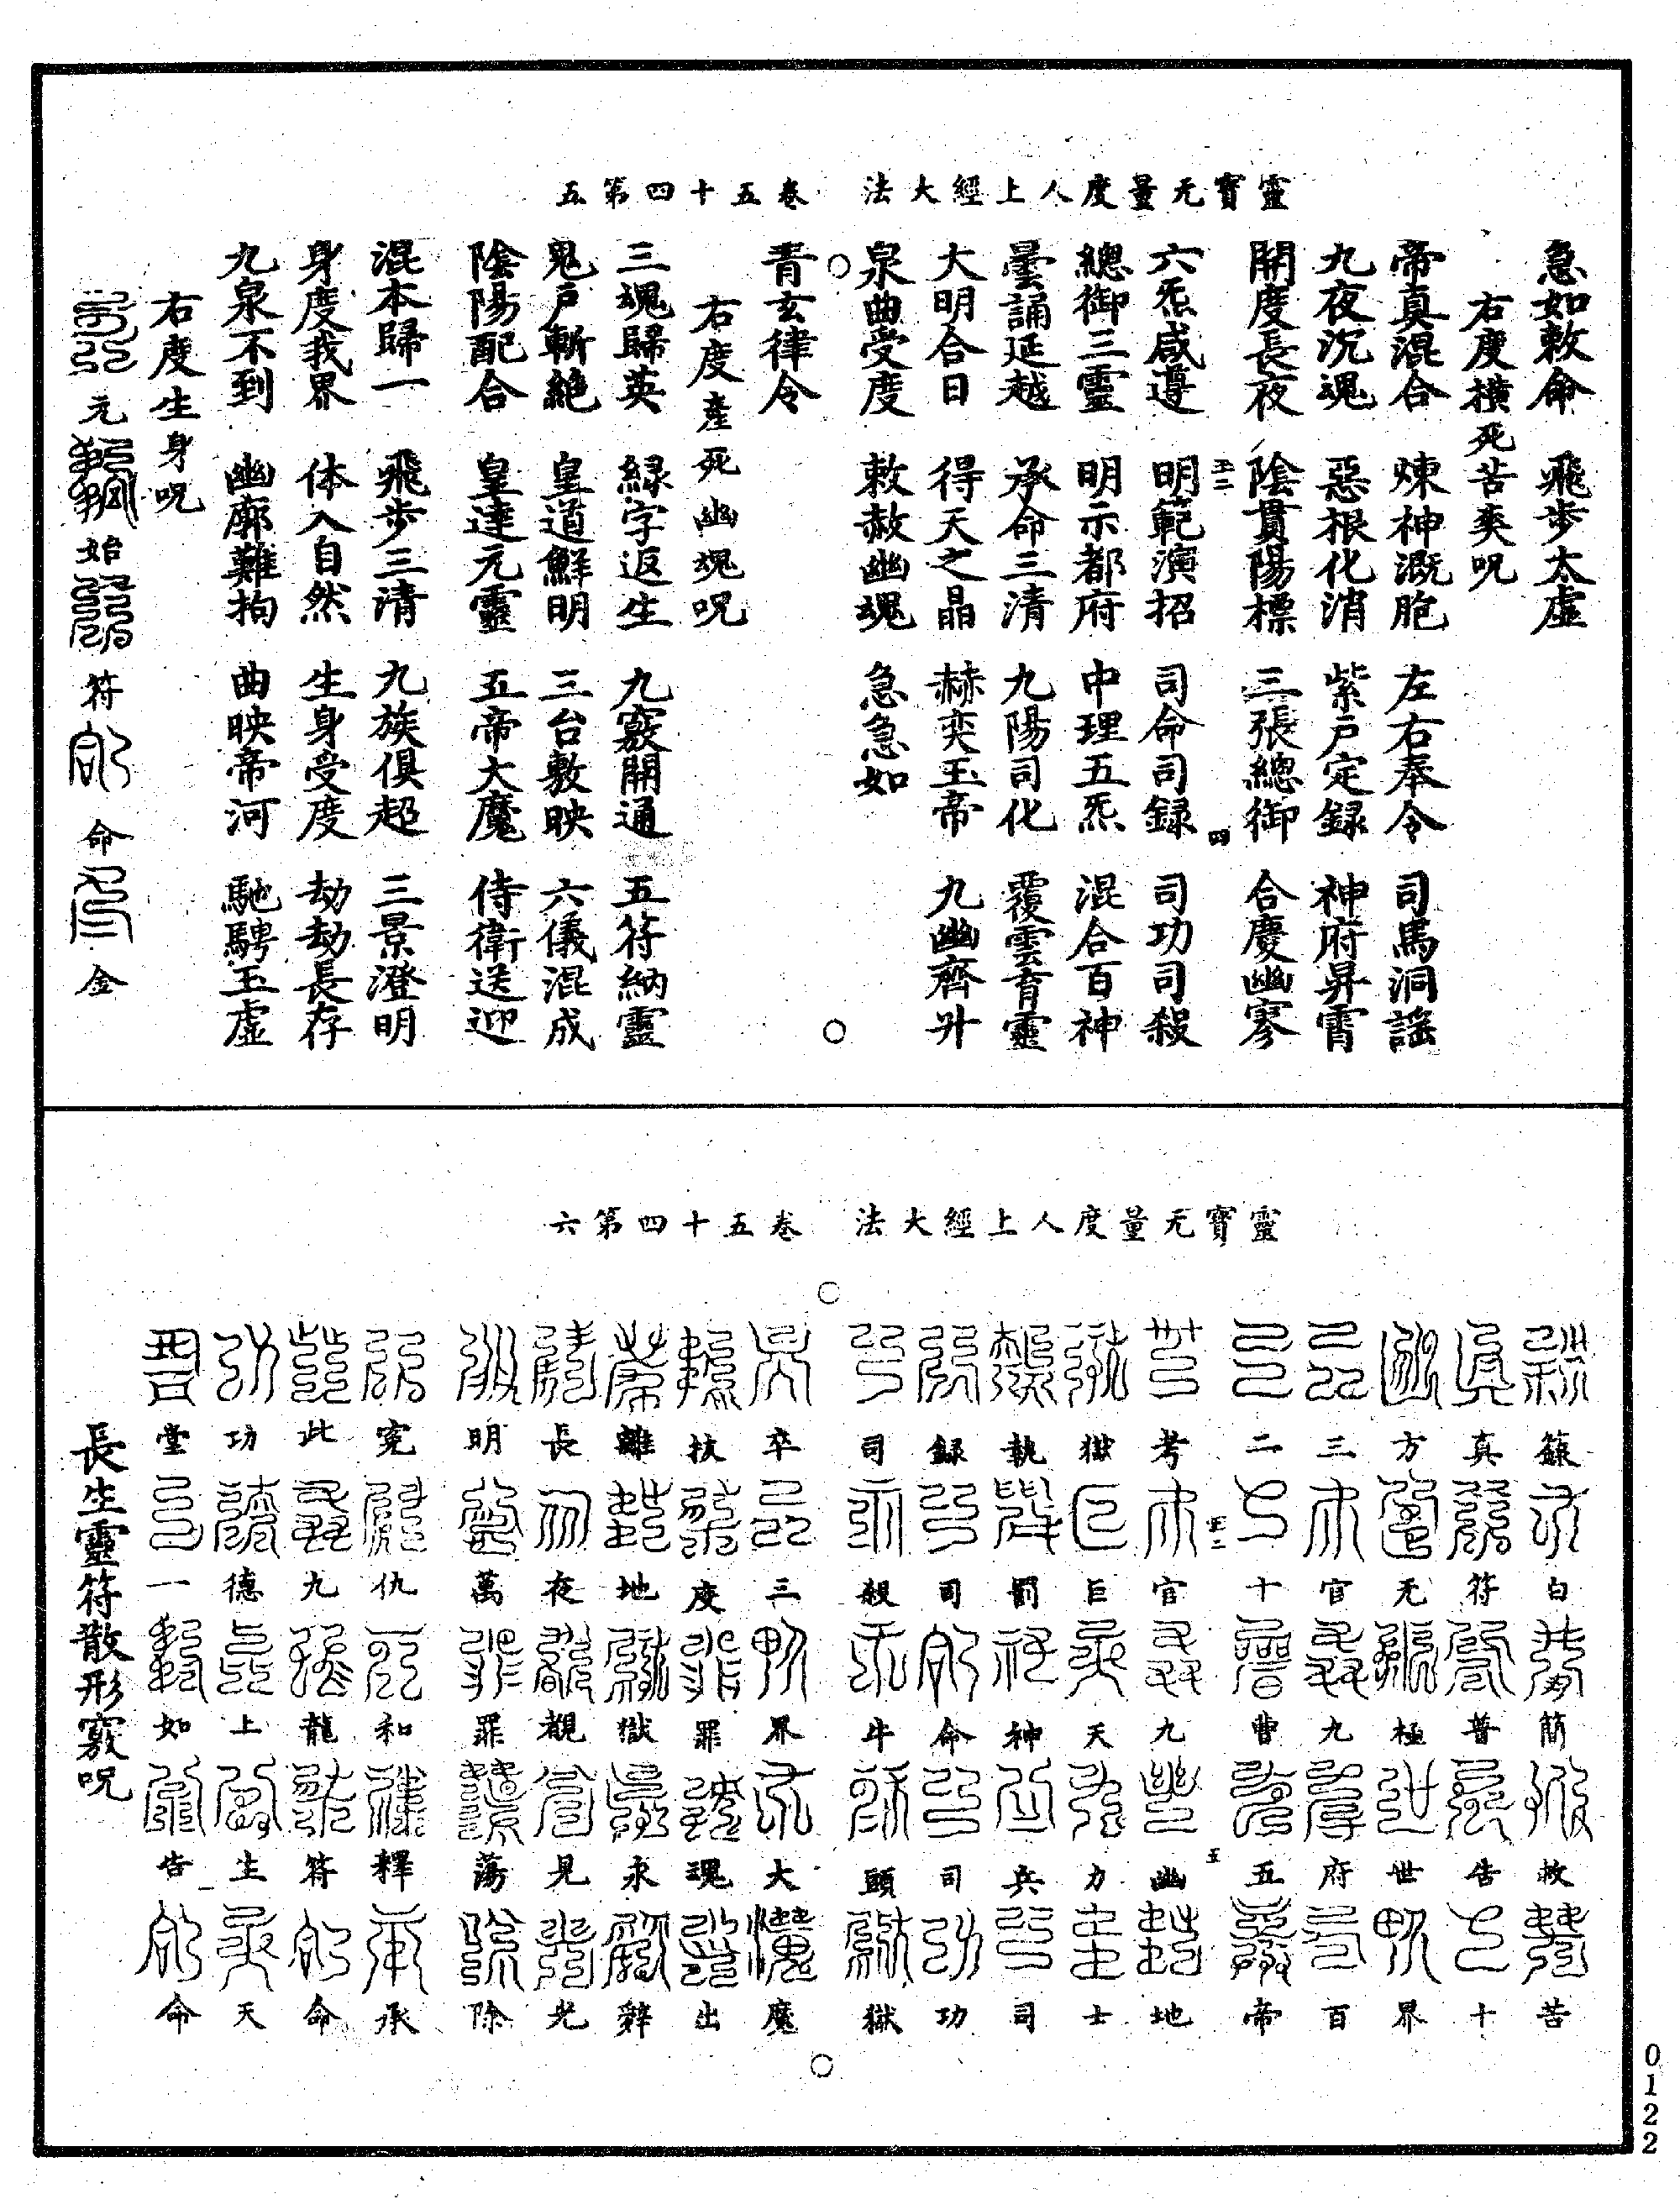 靈寶无量度人上經大法　卷五十四第五
急如敕命　飛步太虛
右度橫死苦爽呪
帝真混合　煉神溉胞　左右奉令　司馬洞謠
九夜沉魂　惡根化消　紫戶定録　神府昇霄
開度長夜　陰貫陽標　三張總御　合慶幽寥
六炁咸遵　明範演招　司命司録　司功司殺
總御三靈　明示都府　中理五炁　混合百神
曇誦延越　承命三清　九陽司化　覆雲育靈
大明合日　得天之晶　赫奕玉帝　九幽齊升
泉曲受度　敕赦幽魂　急急如
青玄律令
右度產死幽魂呪
三魂歸英　緑字返生　九竅開通　五符納靈
鬼戶斬絶　皇道鮮明　三台敷映　六儀混成
陰陽配合　皇達元靈　五帝大魔　侍衛送迎
混本歸一　飛步三清　九族俱超　三景澄明
身度我界　体入自然　生身受度　劫劫長存
九泉不到　幽廓難拘　曲映帝河　馳騁玉虛
右度生身呪
元　始　符　命　金
靈寶无量度人上經大法　卷五十四第六
籙　白　簡　救　苦
真　符　普　告　十
方　无　極　世　界
三　官　九　府　百
二　十　曹　五　帝
考　官　九　幽　地
獄　巨　天　力　士
執　罰　神　兵　司
録　司　命　司　功
司　殺　牛　頭　獄
卒　三　界　大　魔
拔　度　罪　魂　出
離　地　獄　永　辭
長　夜　覩　見　光
明　萬　罪　蕩　除
冤　仇　和　釋　承
此　九　龍　符　命
功　德　上　生　天
堂　一　如　告　命
長生靈符散形竅呪
0122